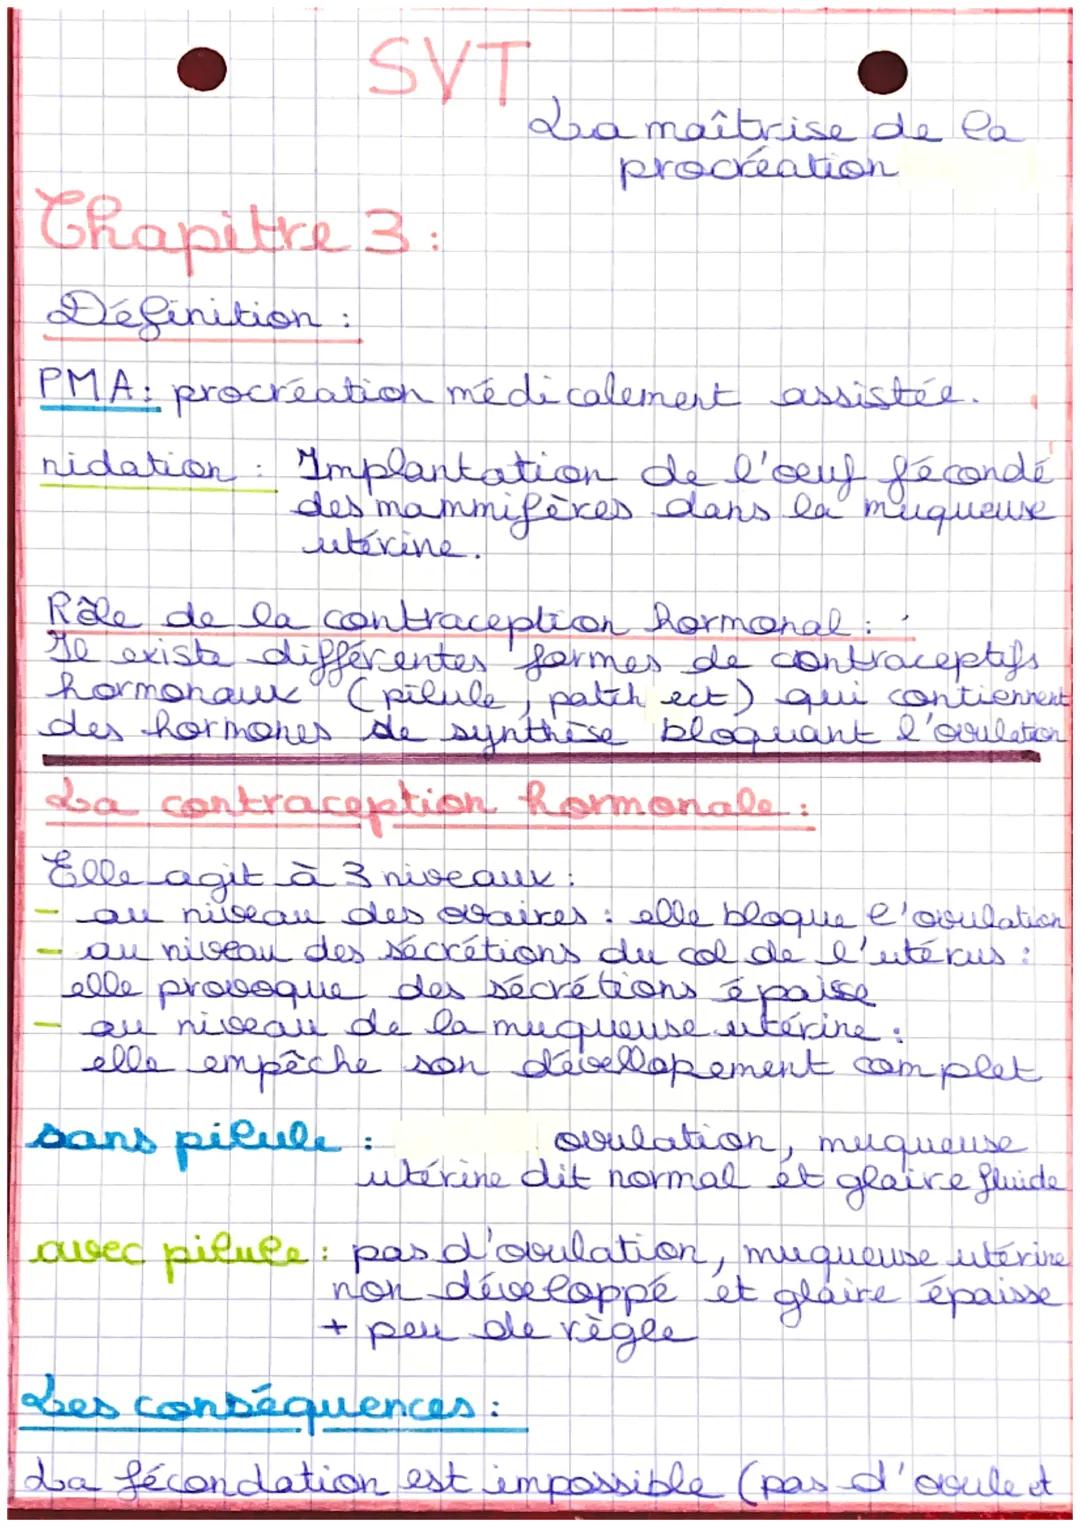 SVT
La maîtrise de la
procréation
Chapitre 3 :
Définition :
PMA : procréation médicalement assistée.
nidation : Implantation de l'oeuf fécondé
des mammifères dans la muqueuse
utérine.
Rôle de la contraception hormonal :
Il existe différentes formes de contraceptifs
hormonaux (pilule, patch ect) qui contiennent
des hormones de synthèse bloquant l'ovulation
La contraception hormonale :
Elle agit à 3 niveaux :
- au niveau des ovaires : elle bloque l'ovulation
- au niveau des sécrétions du col de l'utérus :
elle provoque des sécrétions épaisse
- au niveau de la muqueuse utérine :
elle empêche son dévellopement complet
sans pilule : ovulation, muqueuse
utérine dit normal et glaire fluide
avec pilule : pas d'ovulation, muqueuse utérine
non développé et glaire épaisse
+ peu de règle
Les conséquences :
La fécondation est impossible (pas d'ovule et